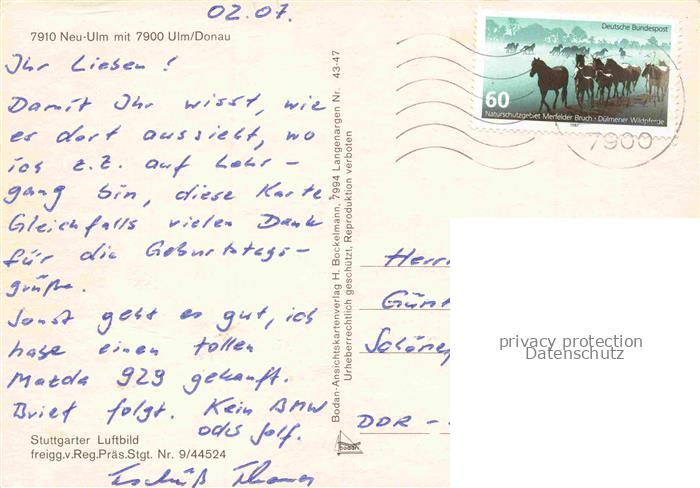 02.07.
7910 Neu-Ulm mit 7900 Ulm/Donau
Ihr Lieben !
Damit Ihr wisst, wie
es dort aussieht, wo
ich z.Z. auf Lehr-
gang bin, diese Karte
Gleichfalls vielen Dank
für die Geburtstags-
grüße.
Sonst geht es gut, ich
habe einen tollen
Mazda 929 gekauft.
Brief folgt. Kein BMW
oder Golf.
Tschüß Thomas
Stuttgarter Luftbild
freigg.v.Reg.Präs.Stgt. Nr. 9/44524
Bodan-Ansichtskartenverlag H. Bockelmann, 7994 Langenargen Nr. 43-47
Urheberrechtlich geschützt, Reproduktion verboten
bodan
Deutsche Bundespost
60
Naturschutzgebiet Merfelder Bruch · Dülmener Wildpferde
1987
7900
Herrn
Günt
Schöne
DDR -
privacy protection
Datenschutz